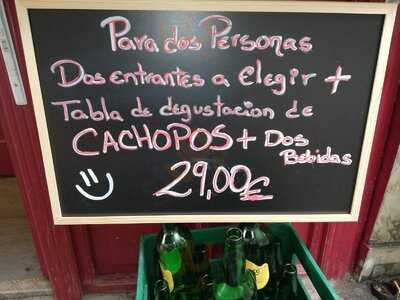 Para dos Personas
Dos entrantes a elegir +
Tabla de degustacion de
CACHOPOS + Dos
Bebidas
29,00€